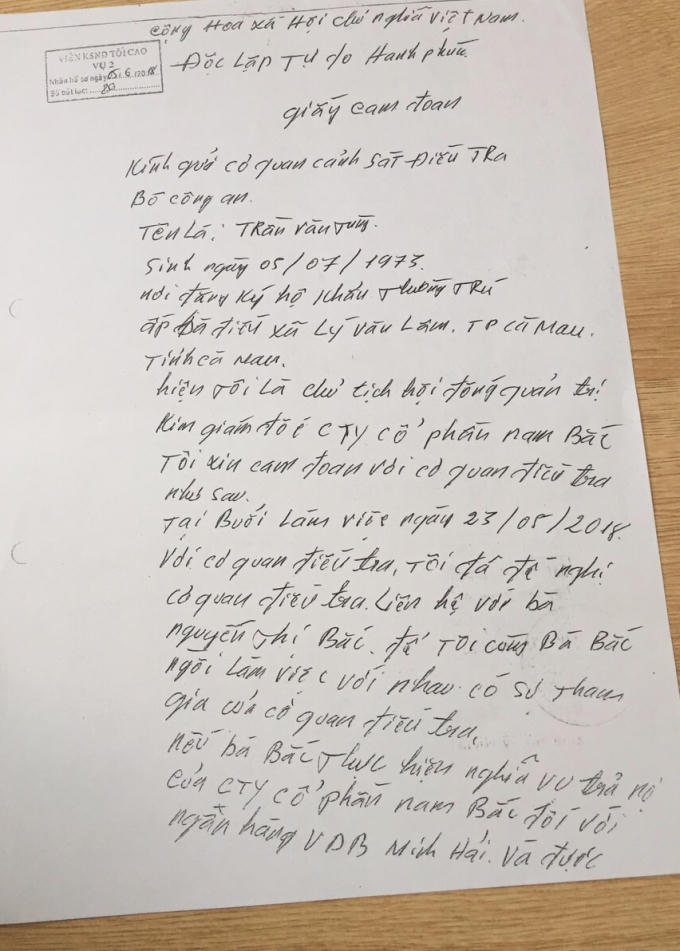 Cộng Hoa xã Hội chủ nghĩa Việt Nam.
VIỆN KSND TỐI CAO
VỤ 2
Nhận hồ sơ ngày 05/6/2018
Số bút lục:
Độc Lập Tự do Hanh phúc
giấy cam đoan
Kính gửi cơ quan cảnh sát Điều TRa
Bộ công an.
Tên Là: Trần Văn Tùng.
Sinh ngày 05/07/1973.
nơi đăng ký hộ khẩu Thường TRú
ấp Bà điều xã Lý Văn Lâm. TP cà Mau.
Tỉnh cà Mau.
hiện Tôi Là chủ tịch hội đồng quản trị
Kim giám đốc CTY cổ phần nam Bắc
Tôi xin cam đoan với cơ quan điều tra
như sau.
Tại Buổi Làm việc ngày 23/05/2018.
Với cơ quan điều tra, Tôi đã đề nghị
cơ quan điều tra. Liên hệ với bà
nguyễn Thị Bắc. để Tôi cùng Bà Bắc
ngồi Làm việc với nhau có sự Tham
gia của cơ quan điều tra,
nếu bà Bắc Thực hiện nghĩa vụ trả nợ
của CTY cổ phần nam Bắc đối với
ngân hàng VDB Minh Hải. và được